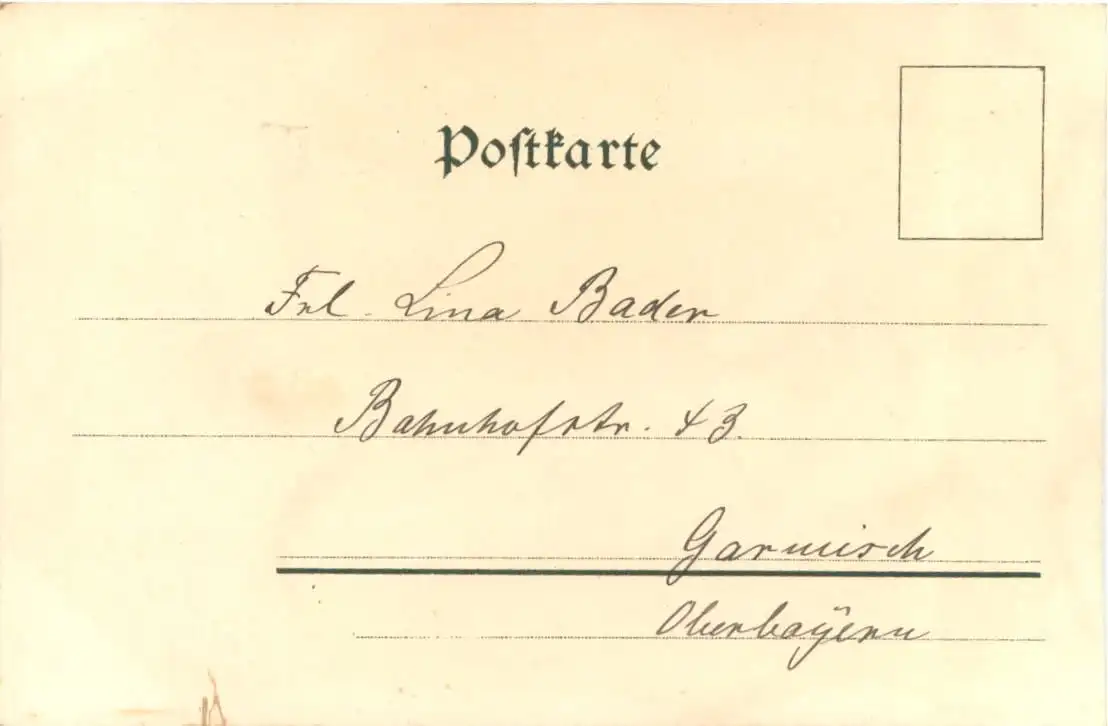 Postkarte
Frl. Lina Bader
Bahnhofstr. 43.
Garmisch
Oberbayern